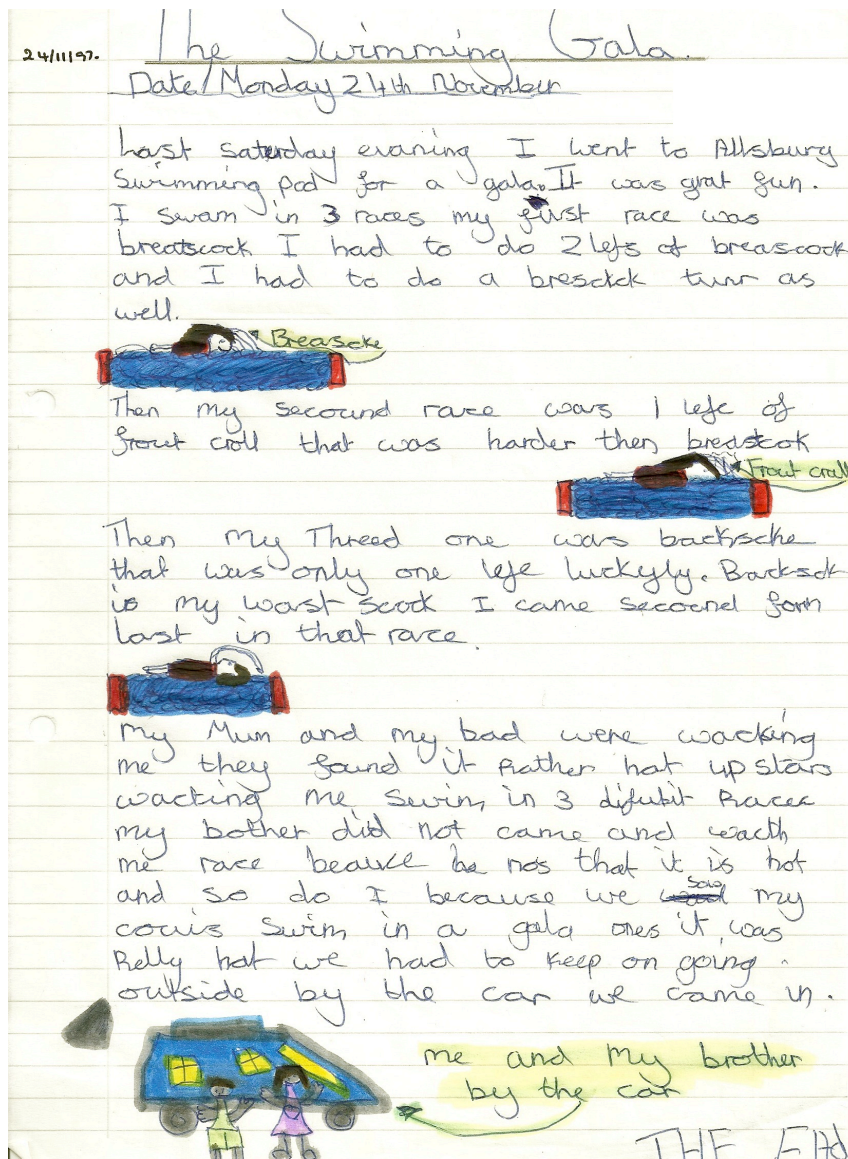 The Swimming Gala.
24/11/97.
Date/Monday 24th November
Last saturday evaning I went to Allsbury
Swimming pool for a gala. It was grat fun.
I swam in 3 races my first race was
breatscock I had to do 2 lefs of breascock
and I had to do a bresckk turr as
well.
Breascke
Then my secound race was 1 lefe of
frout croll that was harder then breastcok
Frout croll
Then My Threed one was backscke
that was only one lefe luckyly. Backsck
is my worst scock I came secound form
last in that race.
My Mum and my bad were wacking
me they found it Rather hot up stars
wacking me swim in 3 difubit Races
my bother did not came and wacth
me race beauke he nos that it is hot
and so do I because we saw my
couis Swim in a gala ones it was
Relly hot we had to keep on going
outside by the car we came in.
me and my brother
by the car
THE END